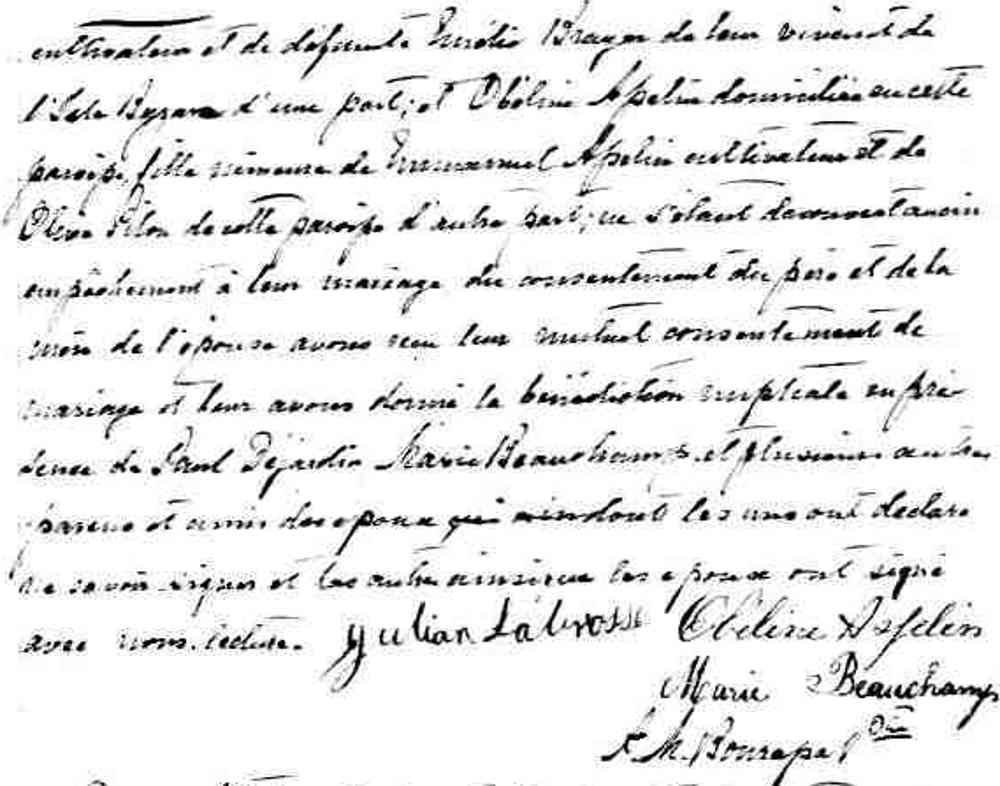 cultivateur et de défunte Emélie Brayer de leur vivant de
l'Isle Bizare d'une part; et Obéline Aspelin domiciliée en cette
paroisse, fille mineure de Emmanuel Aspelin cultivateur et de
Olive Pilon de cette paroisse d'autre part; ne s'étant découvert aucun
empêchement à leur mariage du consentement du père et de la
mère de l'épouse avons reçu leur mutuel consentement de
mariage et leur avons donné la bénédiction nuptiale en pré-
sence de Paul Dejardin Marie Beauchamps et plusieurs autres
parens et amis des epoux qui dont les uns ont declaré
ne savoir signer et les autre ainsi que les epoux ont signé
avec nous. lecture. Julian Labrosse Obeline Asselin
Marie Beauchamps
Ptre